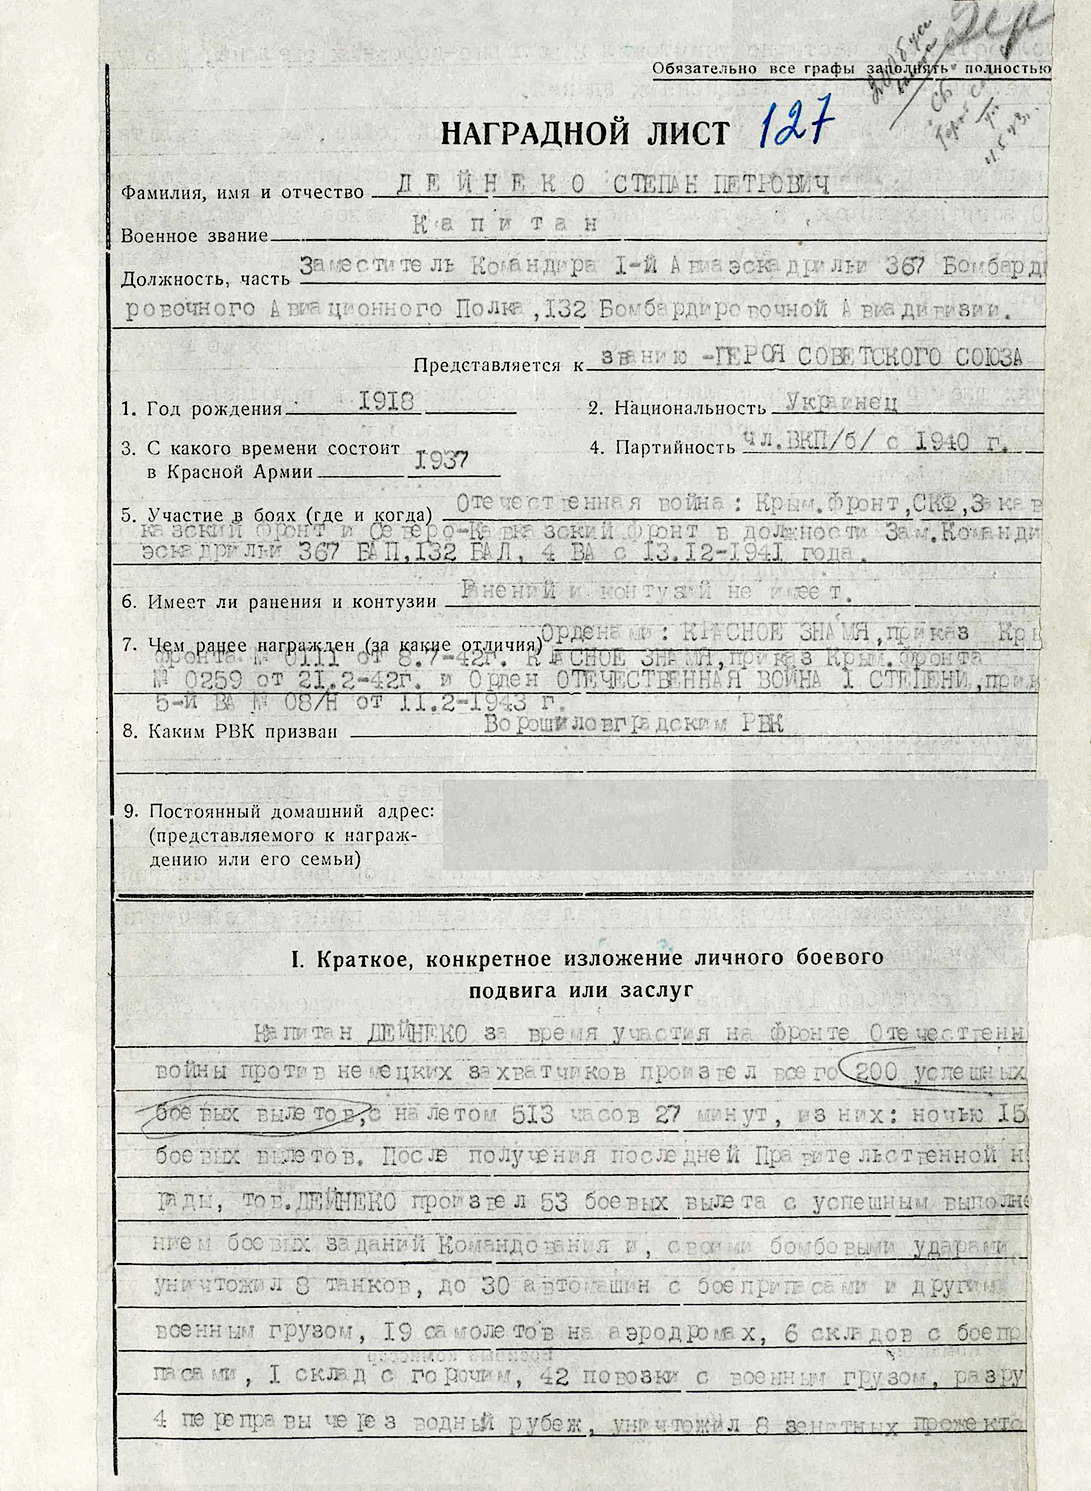 Обязательно все графы заполнять полностью
НАГРАДНОЙ ЛИСТ 127
Фамилия, имя и отчество ДЕЙНЕКО СТЕПАН ПЕТРОВИЧ
Военное звание Капитан
Должность, часть Заместитель Командира I-й Авиаэскадрильи 367 Бомбард
ровочного Авиационного Полка,132 Бомбардировочной Авиадивизии.
Представляется к званию -ГЕРОЯ СОВЕТСКОГО СОЮЗА
1. Год рождения 1918 2. Национальность Украинец
3. С какого времени состоит 4. Партийность чл.ВКП/б/ с 1940 г.
в Красной Армии 1937
5. Участие в боях (где и когда) Отечественная война: Крым.фронт,СКФ,Закав
казский фронт и Северо-Кавказский фронт в должности Зам.Команди
эскадрильи 367 БАП,132 БАД, 4 ВА с 13.12-1941 года.
6. Имеет ли ранения и контузии Ранений и контузий не имеет.
7. Чем ранее награжден (за какие отличия) Орденами: КРАСНОЕ ЗНАМЯ,приказ Кры
фронта № 0111 от 8.7-42г. КРАСНОЕ ЗНАМЯ,приказ Крым.фронта
№ 0259 от 21.2-42г. и Орден ОТЕЧЕСТВЕННАЯ ВОЙНА 1 СТЕПЕНИ,прик
5-й ВА № 08/Н от 11.2-1943 г.
8. Каким РВК призван Ворошиловградским РВК
9. Постоянный домашний адрес:
(представляемого к награж-
дению или его семьи)
I. Краткое, конкретное изложение личного боевого
подвига или заслуг
Капитан ДЕЙНЕКО за время участия на фронте Отечественн
войны против немецких захватчиков произвел всего 200 успешных
боевых вылетов,с налетом 513 часов 27 минут, из них: ночью 15
боевых вылетов. После получения последней Правительственной н
рады, тов.ДЕЙНЕКО произвел 53 боевых вылета с успешным выполне
нием боевых заданий Командования и, своими бомбовыми ударами
уничтожил 8 танков, до 30 автомашин с боеприпасами и другим
военным грузом, 19 самолетов на аэродромах, 6 складов с боепр
пасами, I склад с горючим, 42 повозки с военным грузом, разру
4 переправы через водный рубеж, уничтожил 8 зенитных прожекто